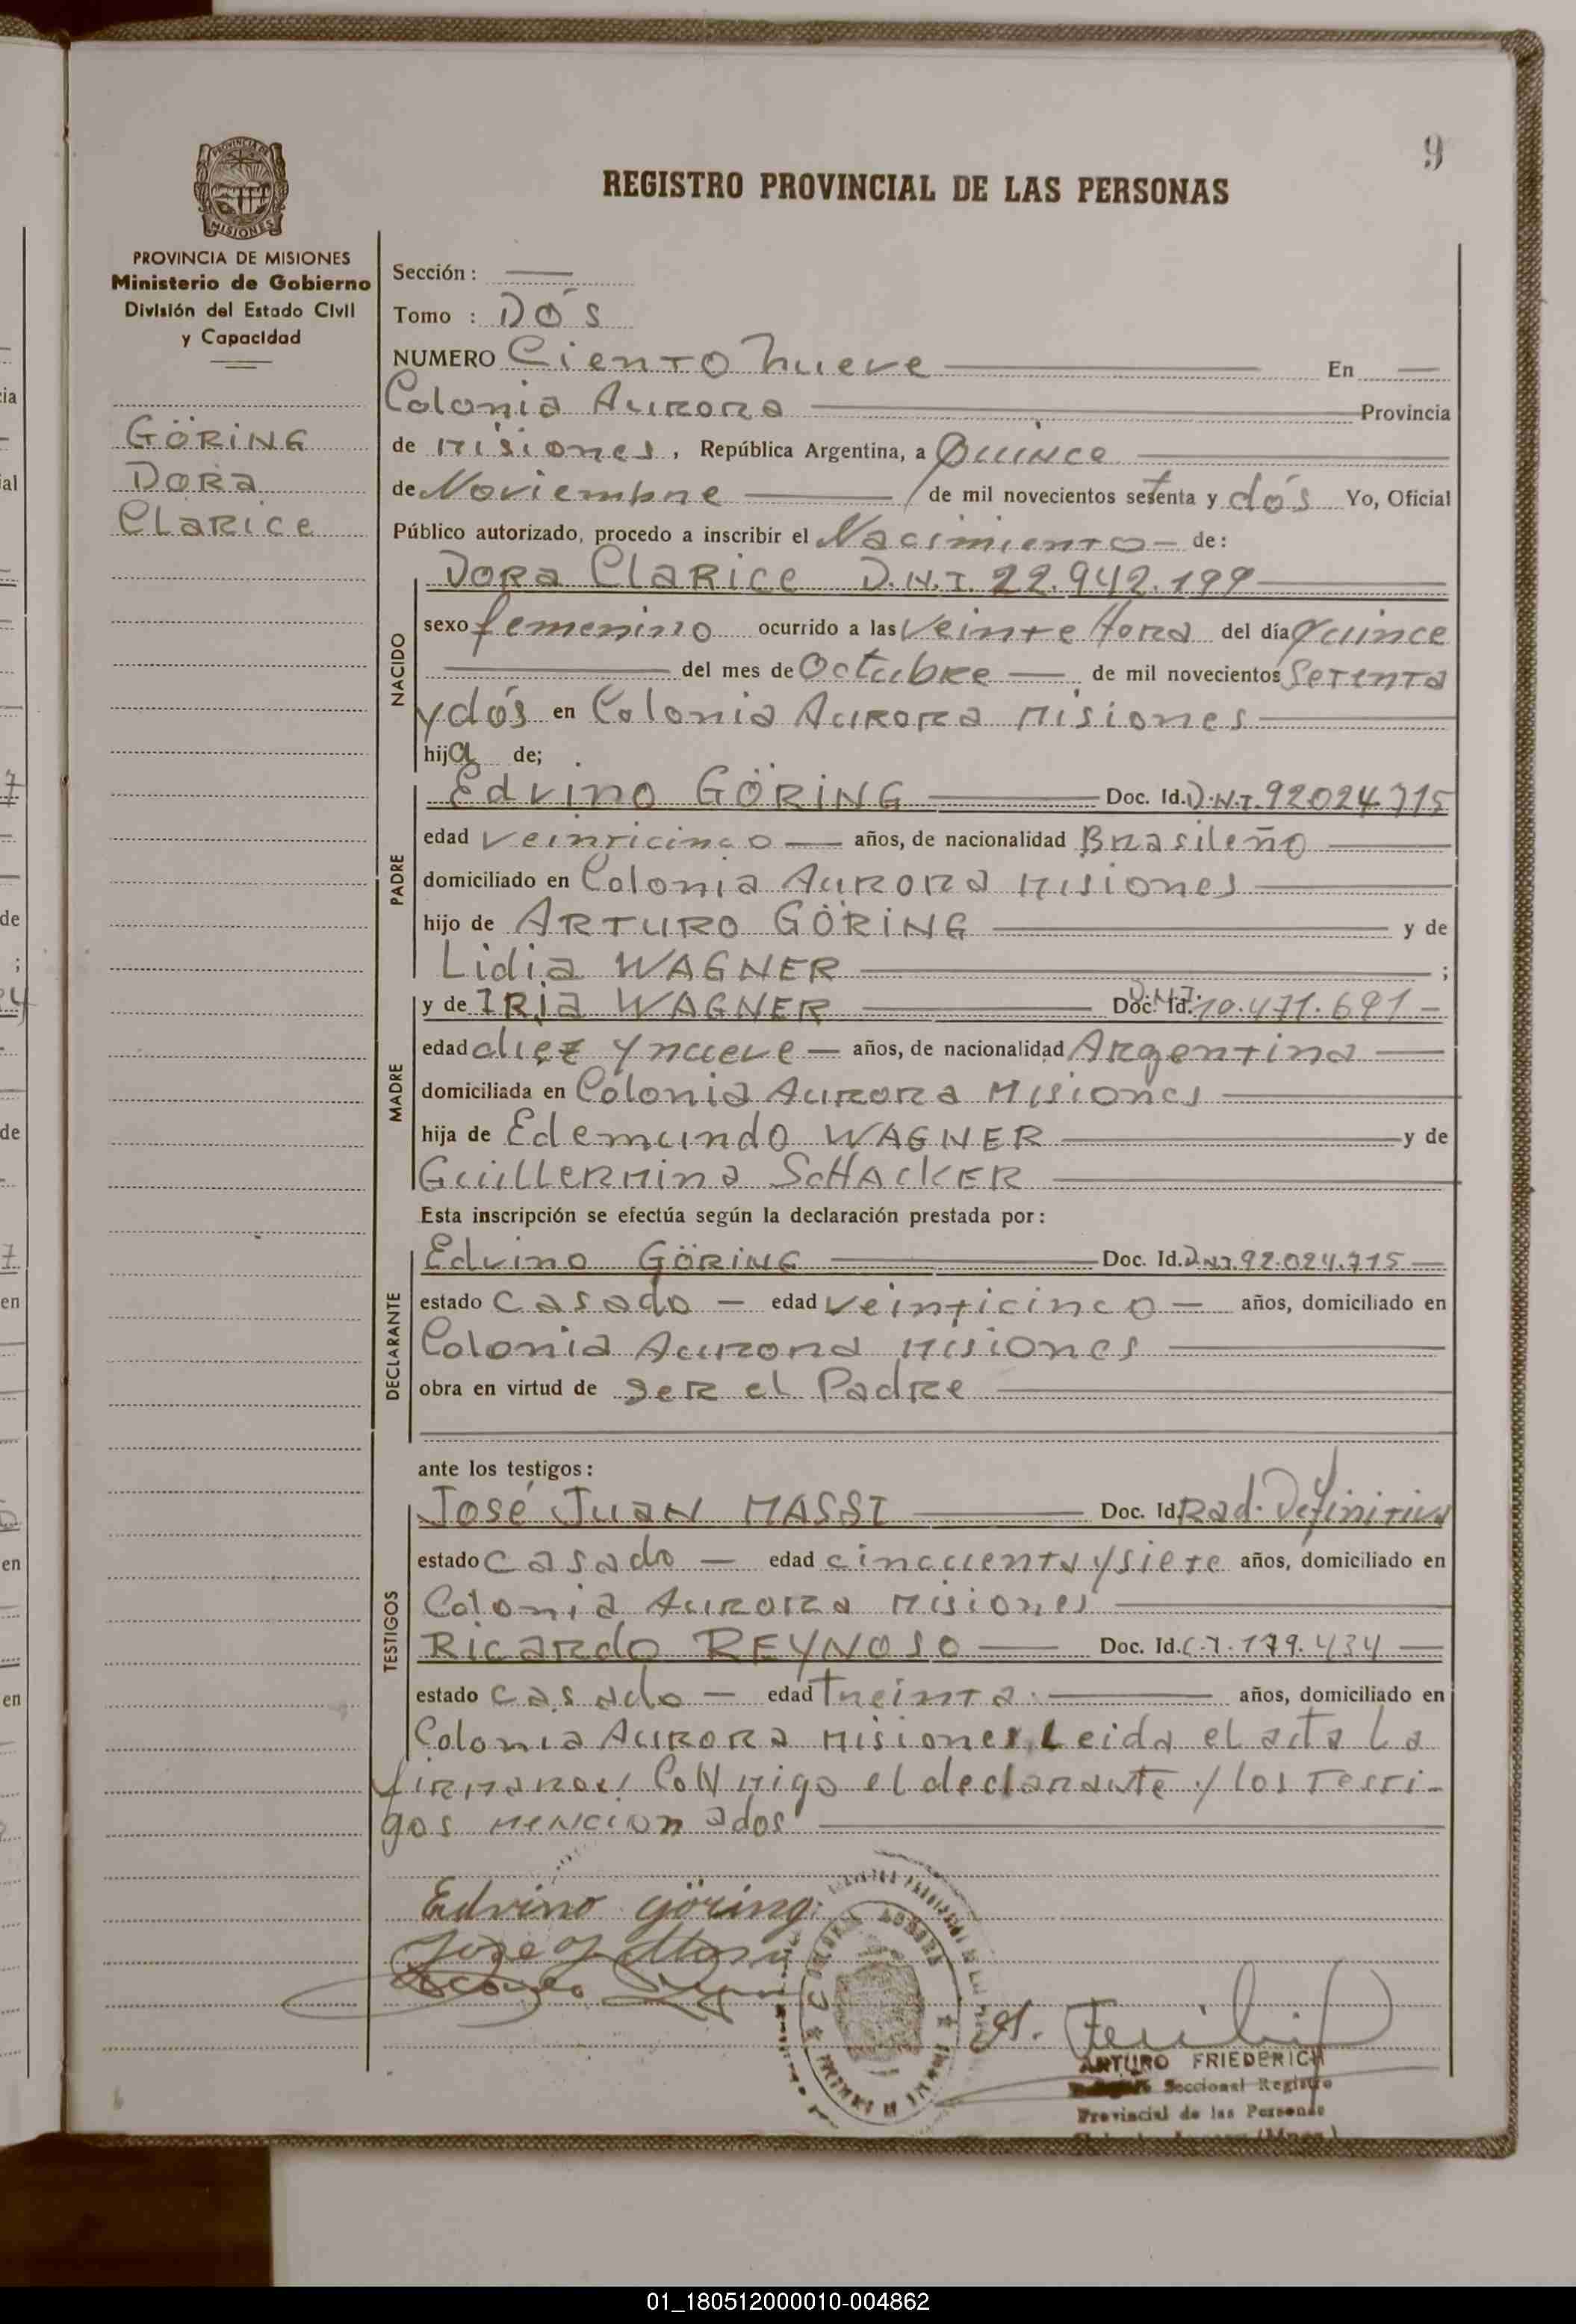 9
REGISTRO PROVINCIAL DE LAS PERSONAS
PROVINCIA DE MISIONES
Ministerio de Gobierno
División del Estado Civil
y Capacidad
GÖRING
DORA
CLARICE
Sección : ——
Tomo : DÓS
NUMERO Ciento nueve —— En ——
Colonia Aurora —— Provincia
de Misiones, República Argentina, a Quince ——
de Noviembre —— de mil novecientos setenta y dós Yo, Oficial
Público autorizado, procedo a inscribir el Nacimiento — de:
NACIDO
DORA CLARICE D.N.I. 22.942.199 ——
sexo femenino ocurrido a las Veinte Hora del día quince
—— del mes de Octubre —— de mil novecientos Setenta
y dós en Colonia Aurora Misiones ——
hija de;
PADRE
Edvino GÖRING —— Doc. Id. D.N.I. 92024.715
edad veinticinco — años, de nacionalidad Brasileño ——
domiciliado en Colonia Aurora Misiones ——
hijo de ARTURO GÖRING —— y de
Lidia WAGNER —— ;
MADRE
y de IRIA WAGNER —— Doc. Id. D.N.I. 10.471.691 —
edad diez y nueve — años, de nacionalidad Argentina ——
domiciliada en Colonia Aurora Misiones ——
hija de Edemundo WAGNER —— y de
Guillermina SCHACKER ——
Esta inscripción se efectúa según la declaración prestada por:
DECLARANTE
Edvino GÖRING —— Doc. Id. D.N.I. 92.024.715 —
estado Casado — edad veinticinco — años, domiciliado en
Colonia Aurora Misiones ——
obra en virtud de ser el Padre ——
ante los testigos:
TESTIGOS
José JUAN MASSI —— Doc. Id. Rad. Definitiva
estado casado — edad cincuenta y siete años, domiciliado en
Colonia Aurora Misiones ——
Ricardo REYNOSO —— Doc. Id. C.I. 179.434 —
estado casado — edad treinta —— años, domiciliado en
Colonia Aurora Misiones, Leida el acta La
firmaron ConMigo el declarante y los testi-
gos mencionados ——
Edvino Göring
José J. Massi
A. Friederich
ARTURO FRIEDERICH
Seccional Registro
Provincial de las Personas
01_180512000010-004862